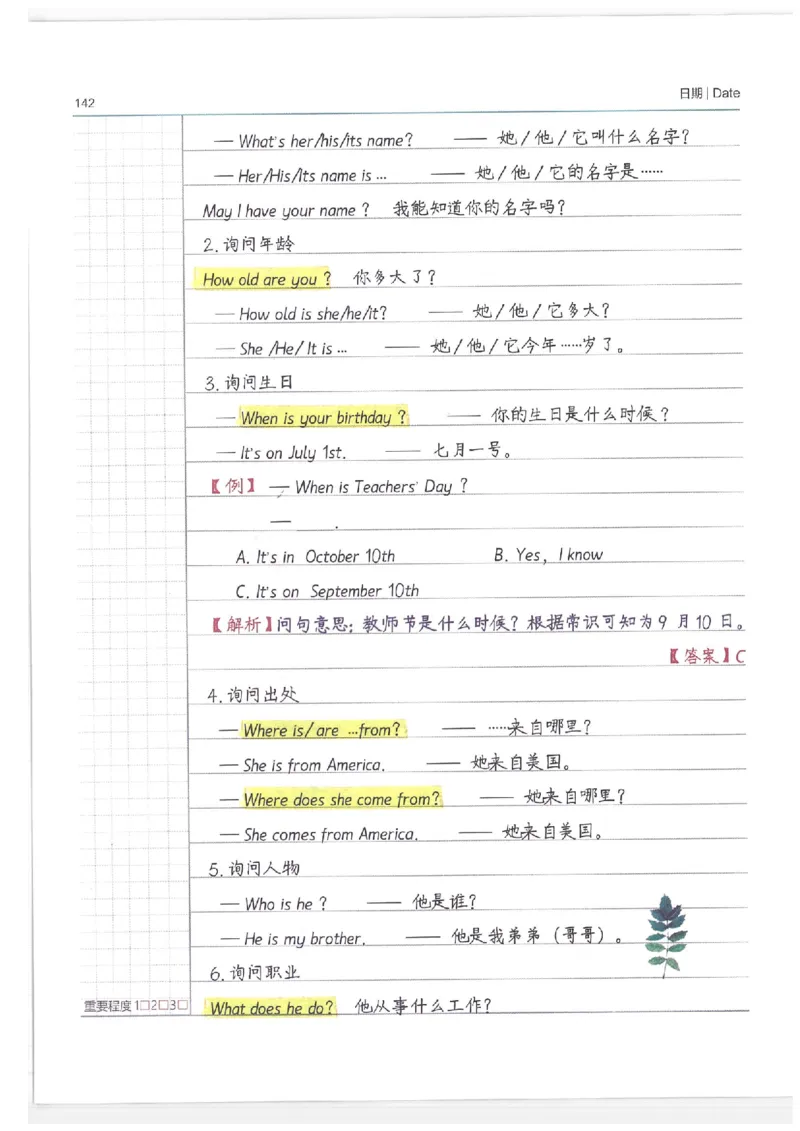 142
日期 | Date
— What's her/his/its name? —— 她/他/它叫什么名字?
— Her/His/Its name is ... —— 她/他/它的名字是……
May I have your name ? 我能知道你的名字吗?
2. 询问年龄
How old are you ? 你多大了?
— How old is she/he/it? —— 她/他/它多大?
— She /He/ It is ... —— 她/他/它今年……岁了。
3. 询问生日
— When is your birthday ? —— 你的生日是什么时候?
— It's on July 1st. —— 七月一号。
【例】 — When is Teachers' Day ?
— ____.
A. It's in October 10th B. Yes, I know
C. It's on September 10th
【解析】问句意思: 教师节是什么时候? 根据常识可知为 9 月 10 日。
【答案】C
4. 询问出处
— Where is/ are ...from? —— ……来自哪里?
— She is from America. —— 她来自美国。
— Where does she come from? —— 她来自哪里?
— She comes from America. —— 她来自美国。
5. 询问人物
— Who is he ? —— 他是谁?
— He is my brother. —— 他是我弟弟 (哥哥) 。
6. 询问职业
重要程度 1□2□3□
What does he do? 他从事什么工作?